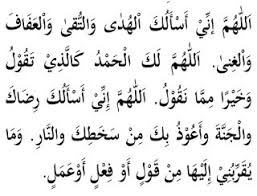 اَللّٰهُمَّ إِنِّيْ أَسْأَلُكَ الْهُدٰى وَالتُّقٰى وَالْعَفَافَ
وَالْغِنٰى. اَللّٰهُمَّ لَكَ الْحَمْدُ كَالَّذِيْ تَقُوْلُ
وَخَيْرًا مِمَّا نَقُوْلُ. اَللّٰهُمَّ إِنِّيْ أَسْأَلُكَ رِضَاكَ
وَالْجَنَّةَ وَأَعُوْذُ بِكَ مِنْ سَخَطِكَ وَالنَّارِ. وَمَا
يُقَرِّبُنِيْ إِلَيْهَا مِنْ قَوْلٍ أَوْ فِعْلٍ أَوْعَمَلٍ.